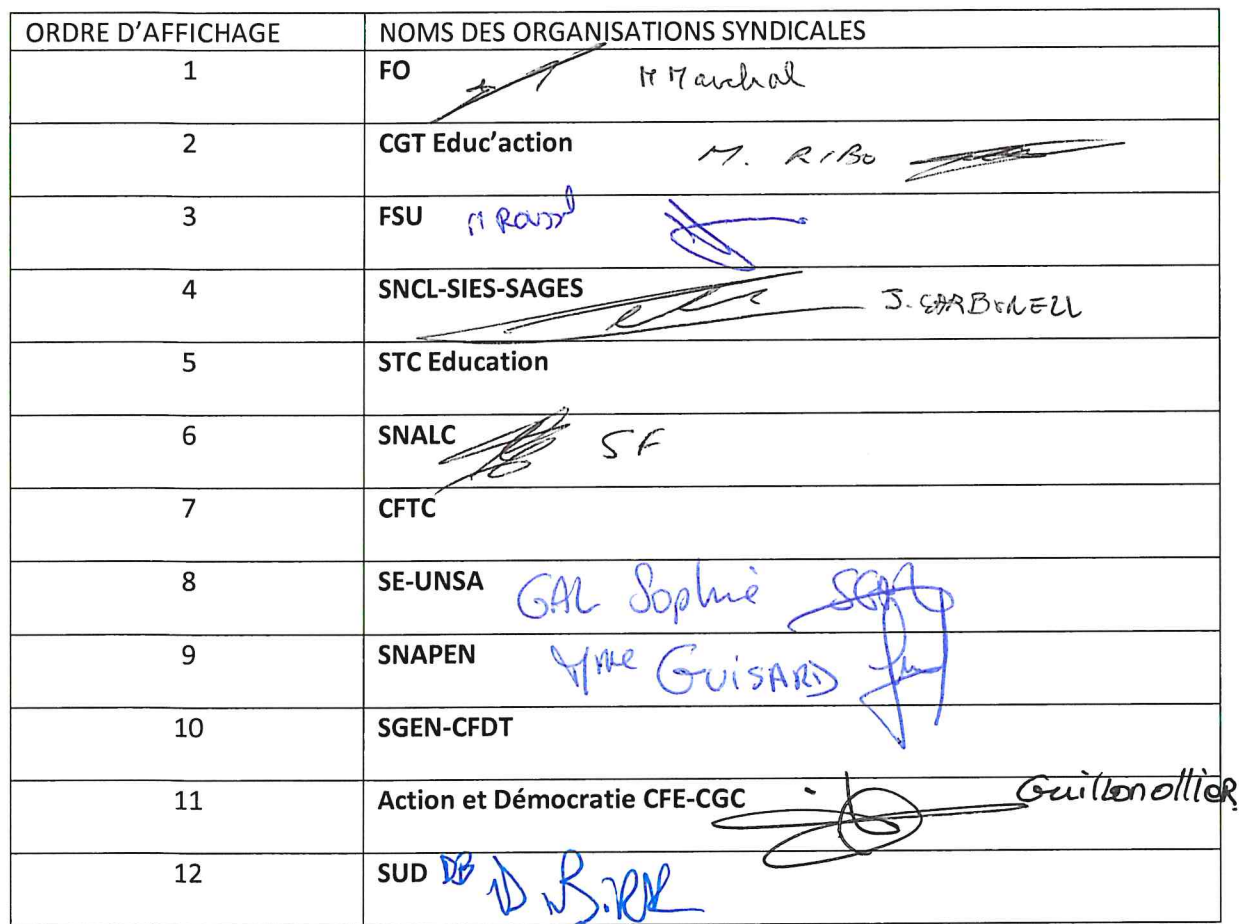 ORDRE D'AFFICHAGE NOMS DES ORGANISATIONS SYNDICALES
1 FO M Marchal
2 CGT Educ'action M. RIBO
3 FSU
4 SNCL-SIES-SAGES J. CARBONELL
5 STC Education
6 SNALC SF
7 CFTC
8 SE-UNSA GAL Sophie SGAL
9 SNAPEN Mme GUISARD
10 SGEN-CFDT
11 Action et Démocratie CFE-CGC
12 SUD DB